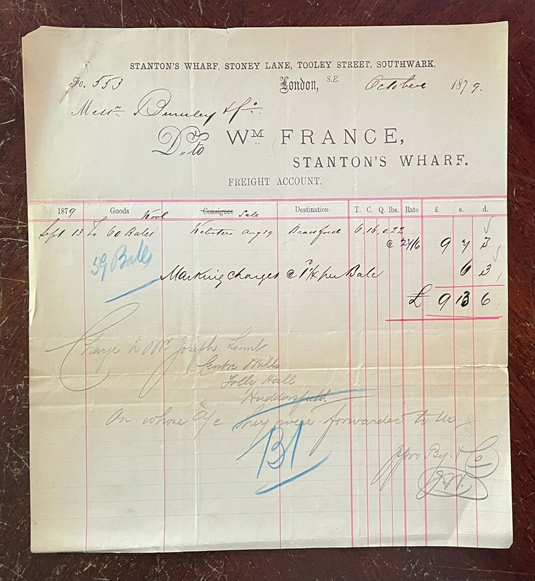 STANTON'S WHARF, STONEY LANE, TOOLEY STREET, SOUTHWARK.
No. 553 London, S.E. October 1879.
Messrs & Co.
Drs to WM FRANCE,
STANTON'S WHARF.
FREIGHT ACCOUNT.
1879 Goods Wool Consignee Sale Destination T. C. Q. lbs. Rate £ s. d.
Sept 13 To 60 Bales Aug 29 Bradford 6 16 0 22
@ 27/6 9 7 3
59 Bales
Marking Charges @ 1¼ per Bale 6 3
£ 9 13 6
Charge to Mr. Joseph
Mills
Folly Hall
Huddersfield
On whose a/c they were forwarded to us
B1